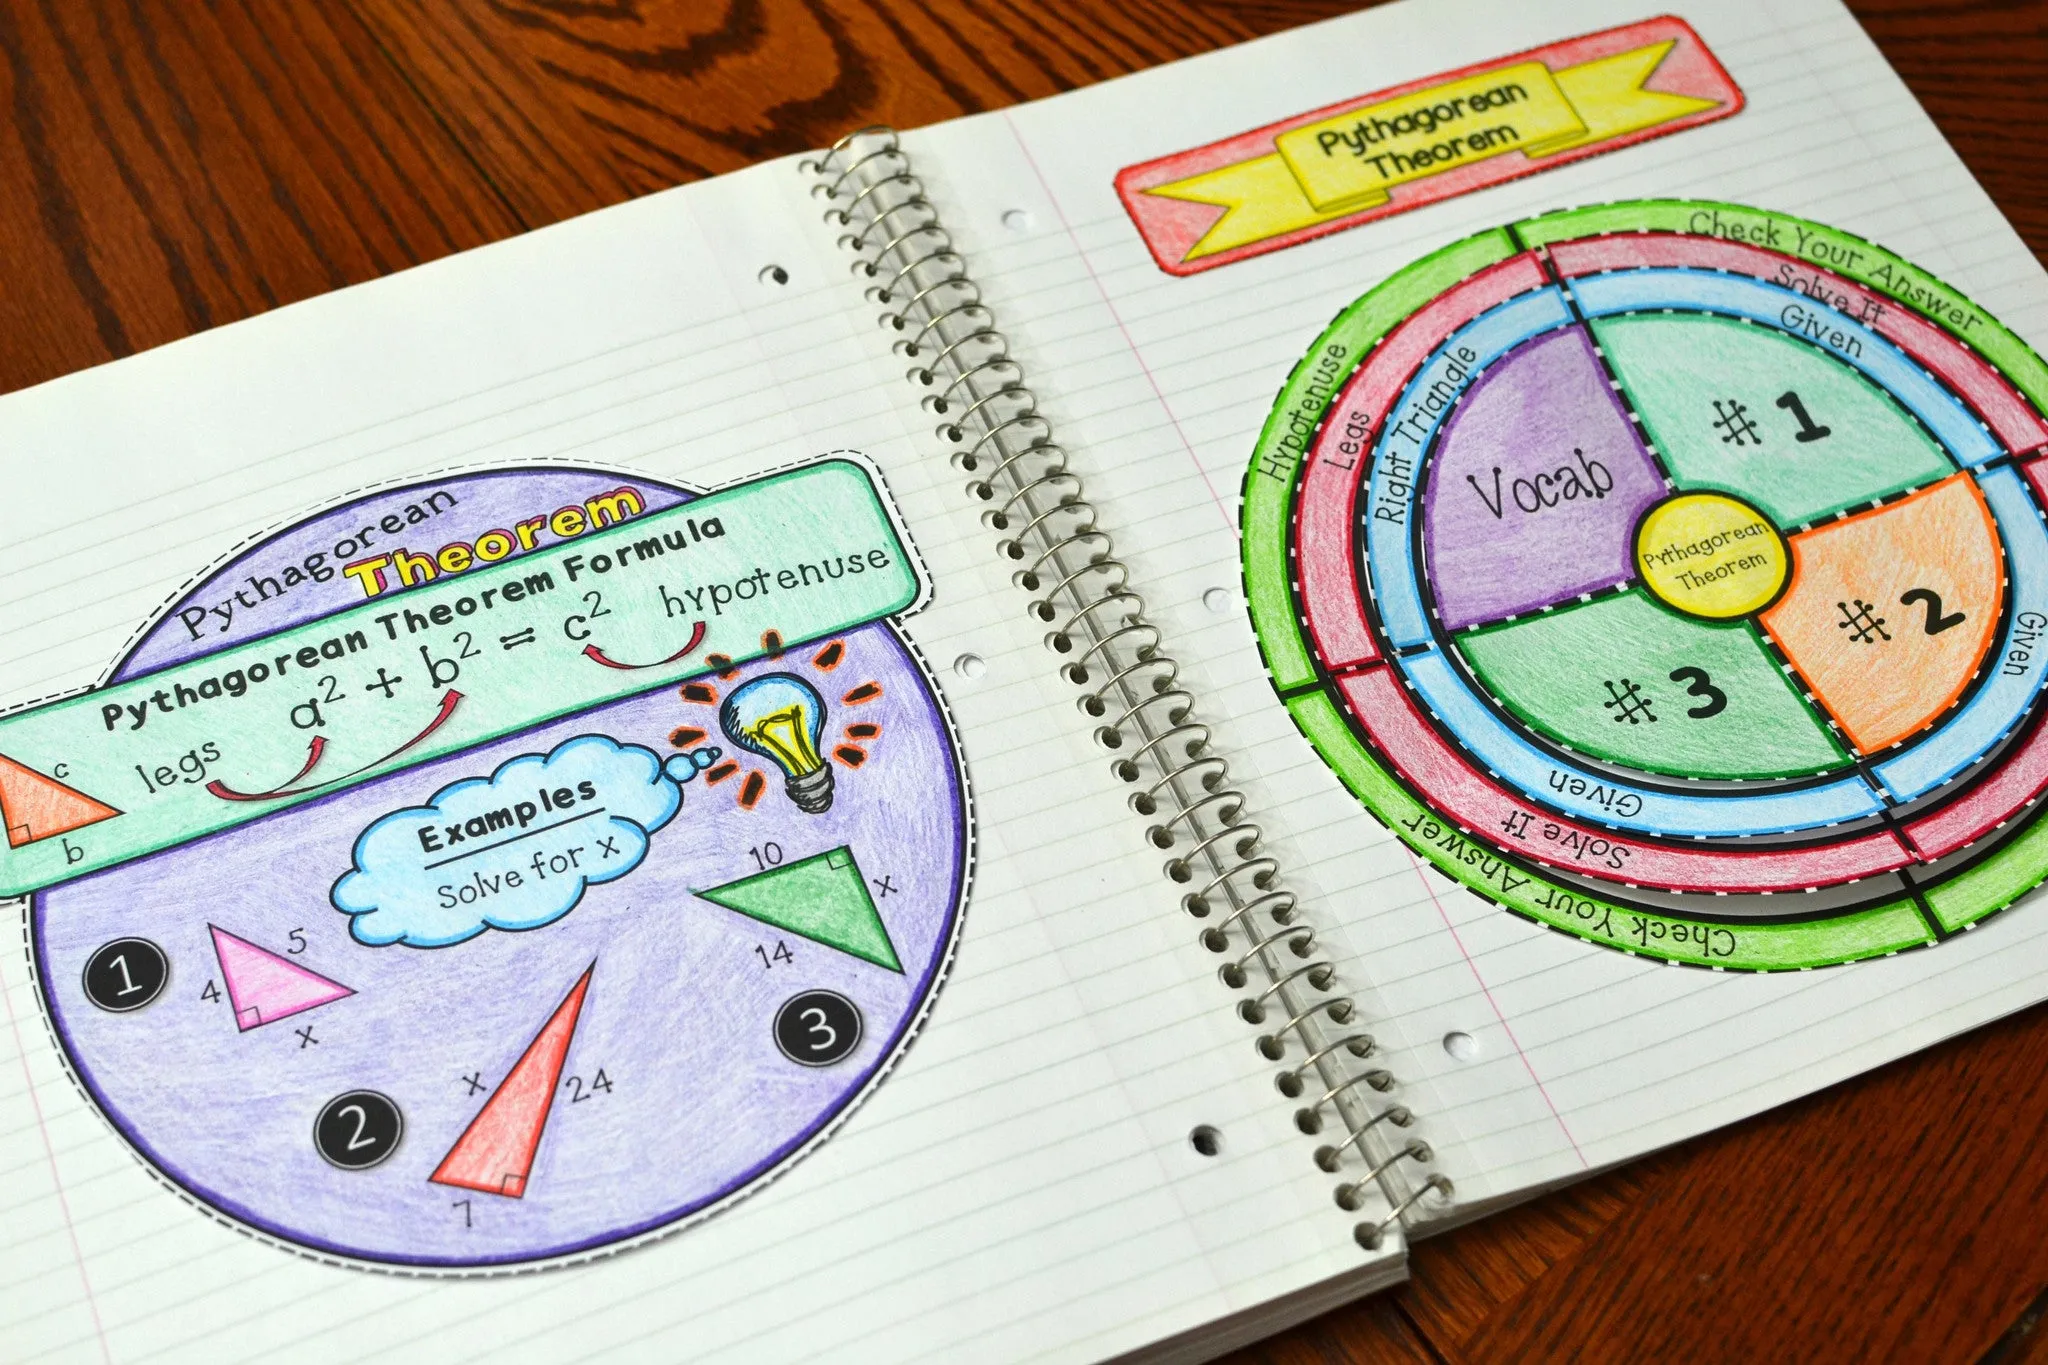 Pythagorean
Theorem
Pythagorean Theorem Formula
a² + b² = c²
hypotenuse
legs
c
b
Examples
Solve for x
1
4
5
x
2
x
24
7
10
x
14
3
Pythagorean
Theorem
Check Your Answer
Solve It
Given
#1
Hypotenuse
Legs
Right Triangle
Vocab
Pythagorean
Theorem
#2
Given
#3
Given
Solve It
Check Your Answer